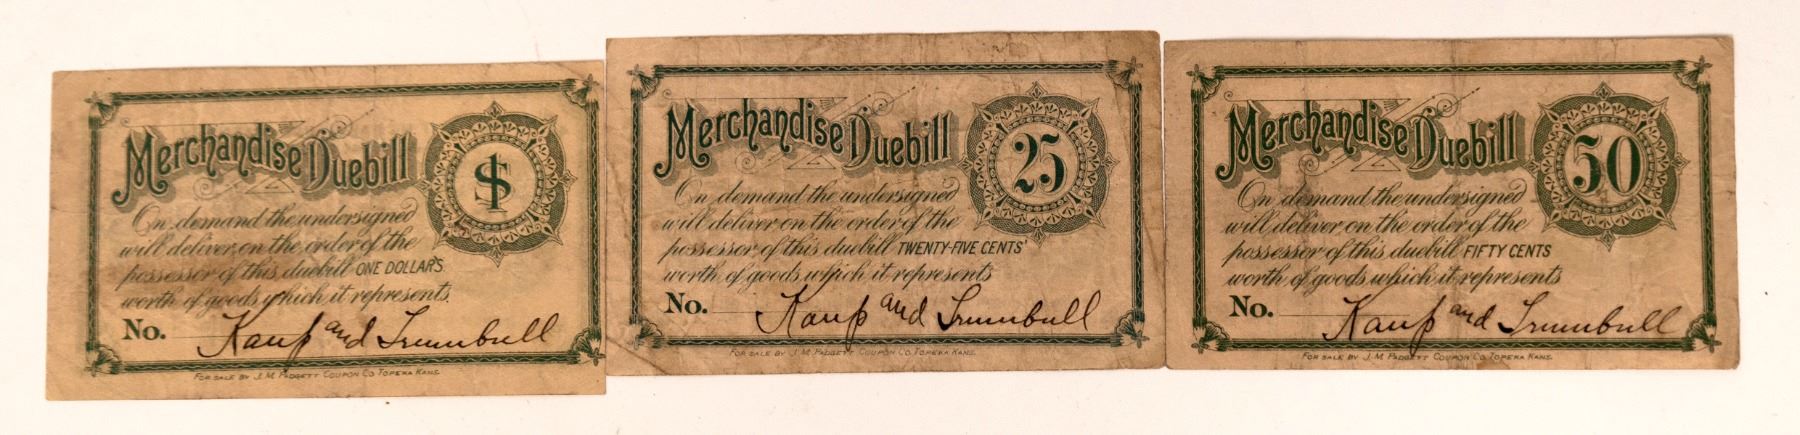 Merchandise Duebill $1
On demand the undersigned
will deliver on the order of the
possessor of this duebill ONE DOLLAR'S
worth of goods which it represents
No. Kaup and Trumbull
FOR SALE BY J. M. PADGETT COUPON CO. TOPEKA KANS.
Merchandise Duebill 25
On demand the undersigned
will deliver on the order of the
possessor of this duebill TWENTY-FIVE CENTS'
worth of goods which it represents
No. Kaup and Trumbull
FOR SALE BY J. M. PADGETT COUPON CO. TOPEKA KANS.
Merchandise Duebill 50
On demand the undersigned
will deliver on the order of the
possessor of this duebill FIFTY CENTS
worth of goods which it represents
No. Kaup and Trumbull
FOR SALE BY J. M. PADGETT COUPON CO. TOPEKA KANS.